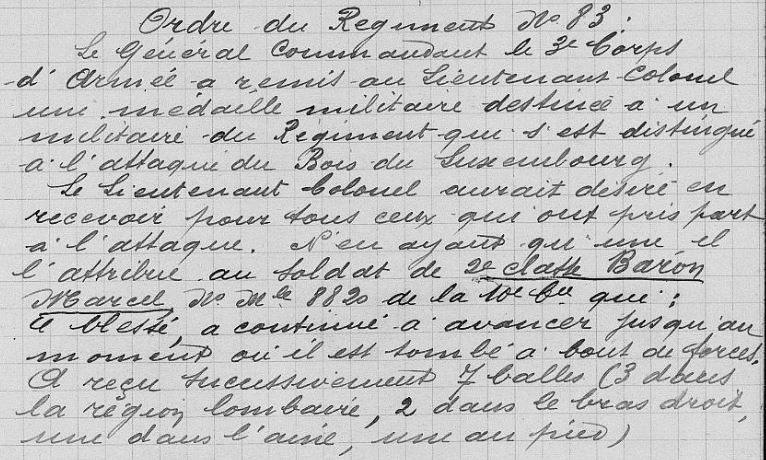 Ordre du Regiment No 83.
Le Général Commandant le 3e Corps
d'Armée a remis au Lieutenant-Colonel
une médaille militaire destinée à un
militaire du Régiment qui s'est distingué
à l'attaque du Bois du Luxembourg.
Le Lieutenant Colonel aurait désiré en
recevoir pour tous ceux qui ont pris part
à l'attaque. N'en ayant qu'une il
l'attribue au soldat de 2e classe Baron
Marcel No Mle 8820 de la 10e Cie qui :
" blessé, a continué à avancer jusqu'au
moment où il est tombé à bout de forces.
A reçu successivement 7 balles (3 dans
la région lombaire, 2 dans le bras droit,
une dans l'aine, une au pied)